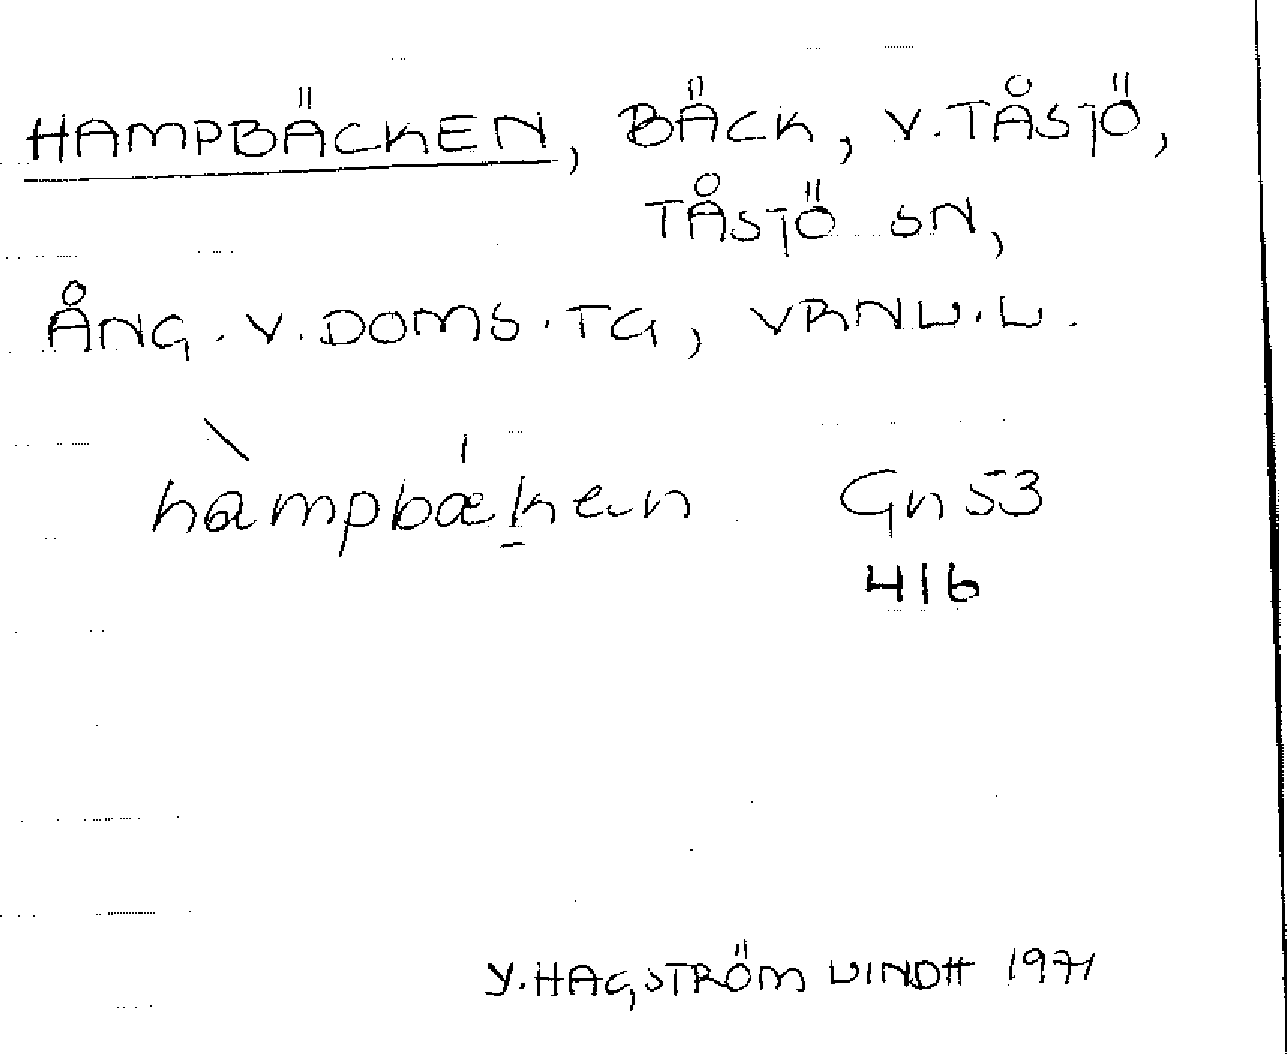 HAMPBÄCKEN, BÄCK, V. TÅSJÖ,
TÅSJÖ SN,
ÅNG. V. DOMS. TG, VRNL. L.
hàmpbæken Gn 53
416
Y. HAGSTRÖM LINDH 1971